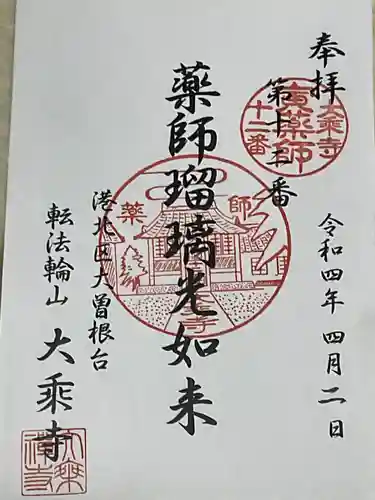 奉拝
第十二番
大乗寺
寅薬師
十二番
令和四年 四月二日
薬師瑠璃光如来
薬
師
港北区大曽根台
転法輪山 大乗寺